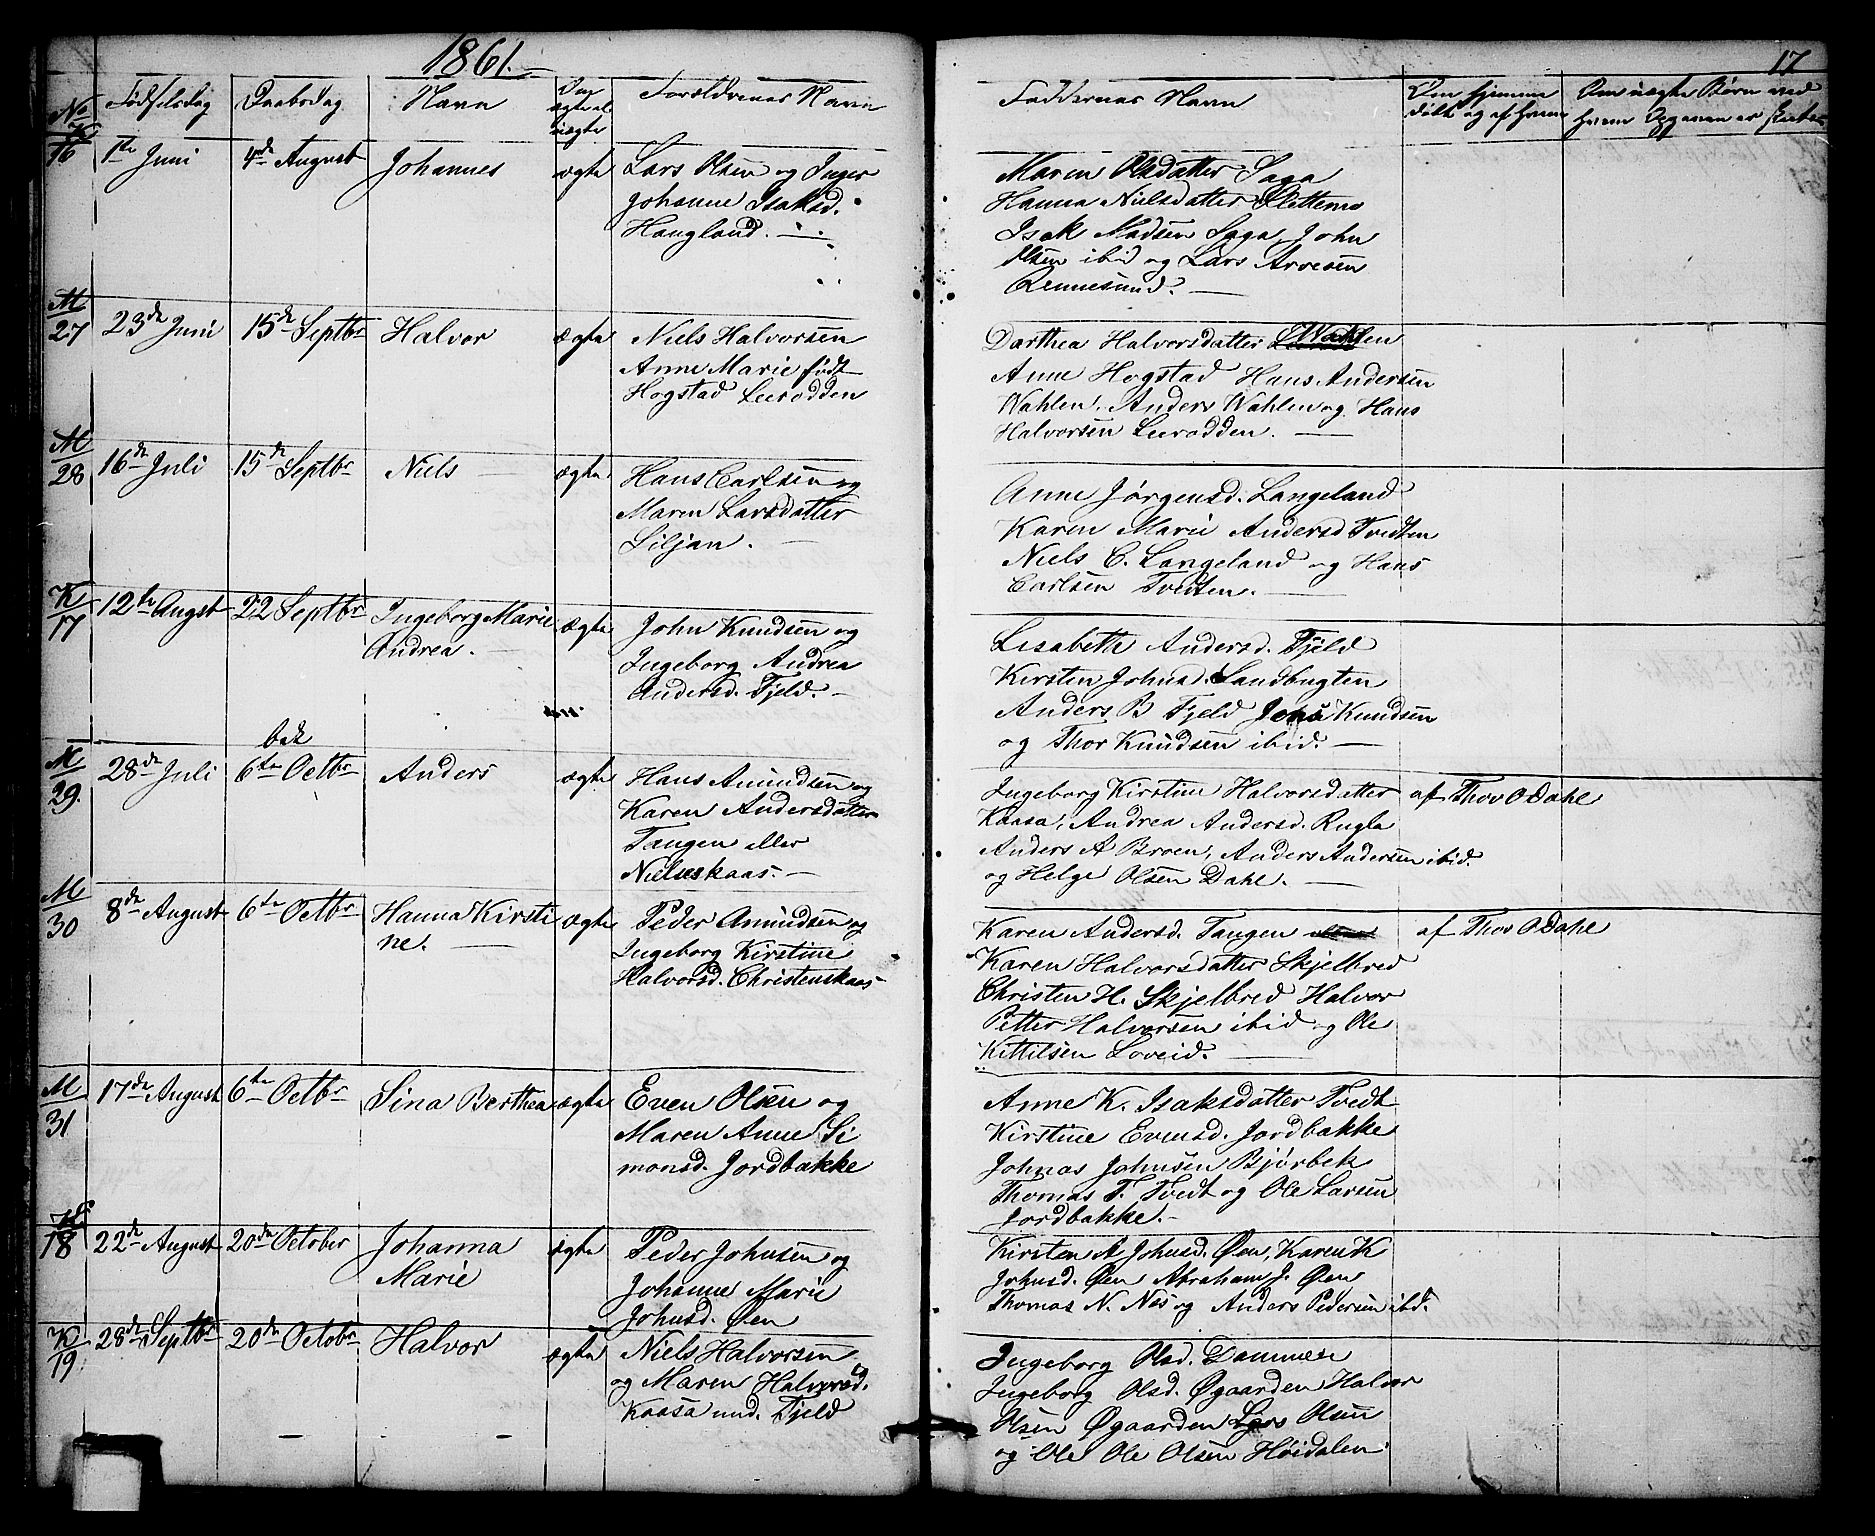 1861.
17
No Fødselsdag Daabsdag Navn Om ægte el. uægte Forældrenes Navn
Faddernes Navn Om hjemme døbt og af hvem
K 16 1te Juni 4de August Johannes ægte Lars Olsen og Inger
Johanne Isaksd.
Haugland.
Maren Olsdatter Saga
Hanna Nielsdatter Slettemo
Isak Madsen Saga, John
Olsen ibid og Lars Arvesen
Rennesund.
M 27 23de Juni 15de Septbr Halvor ægte Niels Halvorsen
Anne Marie født
Hogstad Leerodden
Darthea Halvorsdatter Wahlen
Anne Hogstad Hans Andersen
Wahlen, Anders Wahlen og Hans
Halvorsen Leerodden.
M 28 16de Juli 15de Septbr Niels ægte Hans Carlsen og
Maren Larsdatter
Siljan.
Anne Jørgensd. Langeland
Karen Marie Andersd Tvedten
Niels C. Langeland og Hans
Carlsen Tvedten.
K 17 12te Augst 22 Septbr Ingeborg Marie ægte John Knudsen og
Andrea. Ingeborg Andrea
Andersd. Fjeld.
Lisabeth Andersd. Fjeld
Kirsten Johnsd. Sandbugten
Anders B Fjeld Jens Knudsen
og Thor Knudsen ibid.
bek
M 29. 28de Juli 6te Octbr Anders ægte Hans Amundsen og
Karen Andersdatter
Tangen eller
Nielseskaas.
Ingeborg Kirstine Halvorsdatter af Thov O Dahl
Kaasa, Andrea Andersd. Rugla
Anders A Broen, Anders Andersen ibid.
og Helge Olsen Dahl.
M 30 8de August 6te Octbr Hanna Kirsti ægte Peder Amundsen og
ne. Ingeborg Kirstine
Halvorsd. Christenskaas
Karen Andersd. Tangen af Thov O Dahl
Karen Halvorsdatter Skjelbred
Christen H. Skjelbred Halvor
Petter Halvorsen ibid og Ole
Kittilsen Loveid.
M 31 17de August 6te Octbr Sina Berthea ægte Even Olsen og
Maren Anne Si
monsd. Jordbakke
Anne K. Isaksdatter Tvedt
Kirstine Evensd. Jordbakke
Johnas Johnsen Bjørbek
Thomas T. Tvedt og Ole Larsen
Jordbakke.
K 18 22de August 20de October Johanna ægte Peder Johnsen og
Marie Johanne Marie
Johnsd. Øen
Kirsten A Johnsd. Øen, Karen K
Johnsd. Øen Abraham J. Øen
Thomas N. Næs og Anders Pedersen ibd.
K 19. 28de Septbr 20de Octobr Halvor ægte Niels Halvorsen
og Maren Halvorsd.
Kaasa und. Fjeld
Ingeborg Olsd. Dammen
Ingeborg Olsd. Øgaarden Halvor
Olsen Øgaarden Lars Olsen
og Ole Ole Olsen Høidalen